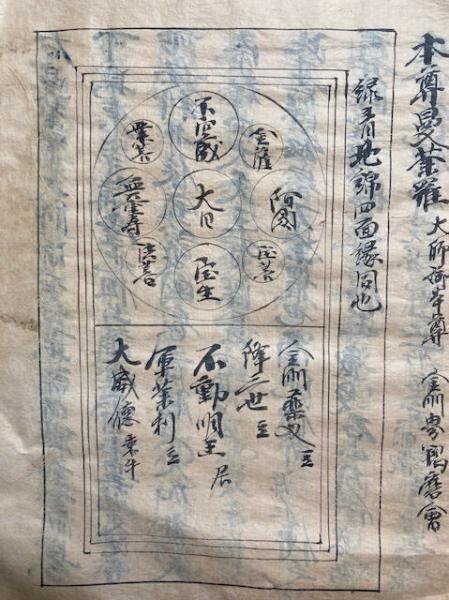 本尊曼荼羅 大師御本尊 金剛界羯磨會
緑青地錦四面縁同也
金薩
阿閦
宝菩
不空成
大日
宝生
業菩
無量壽
法菩
金剛薬叉 立
降三世 立
不動明王 居
軍荼利 立
大威徳 乗牛